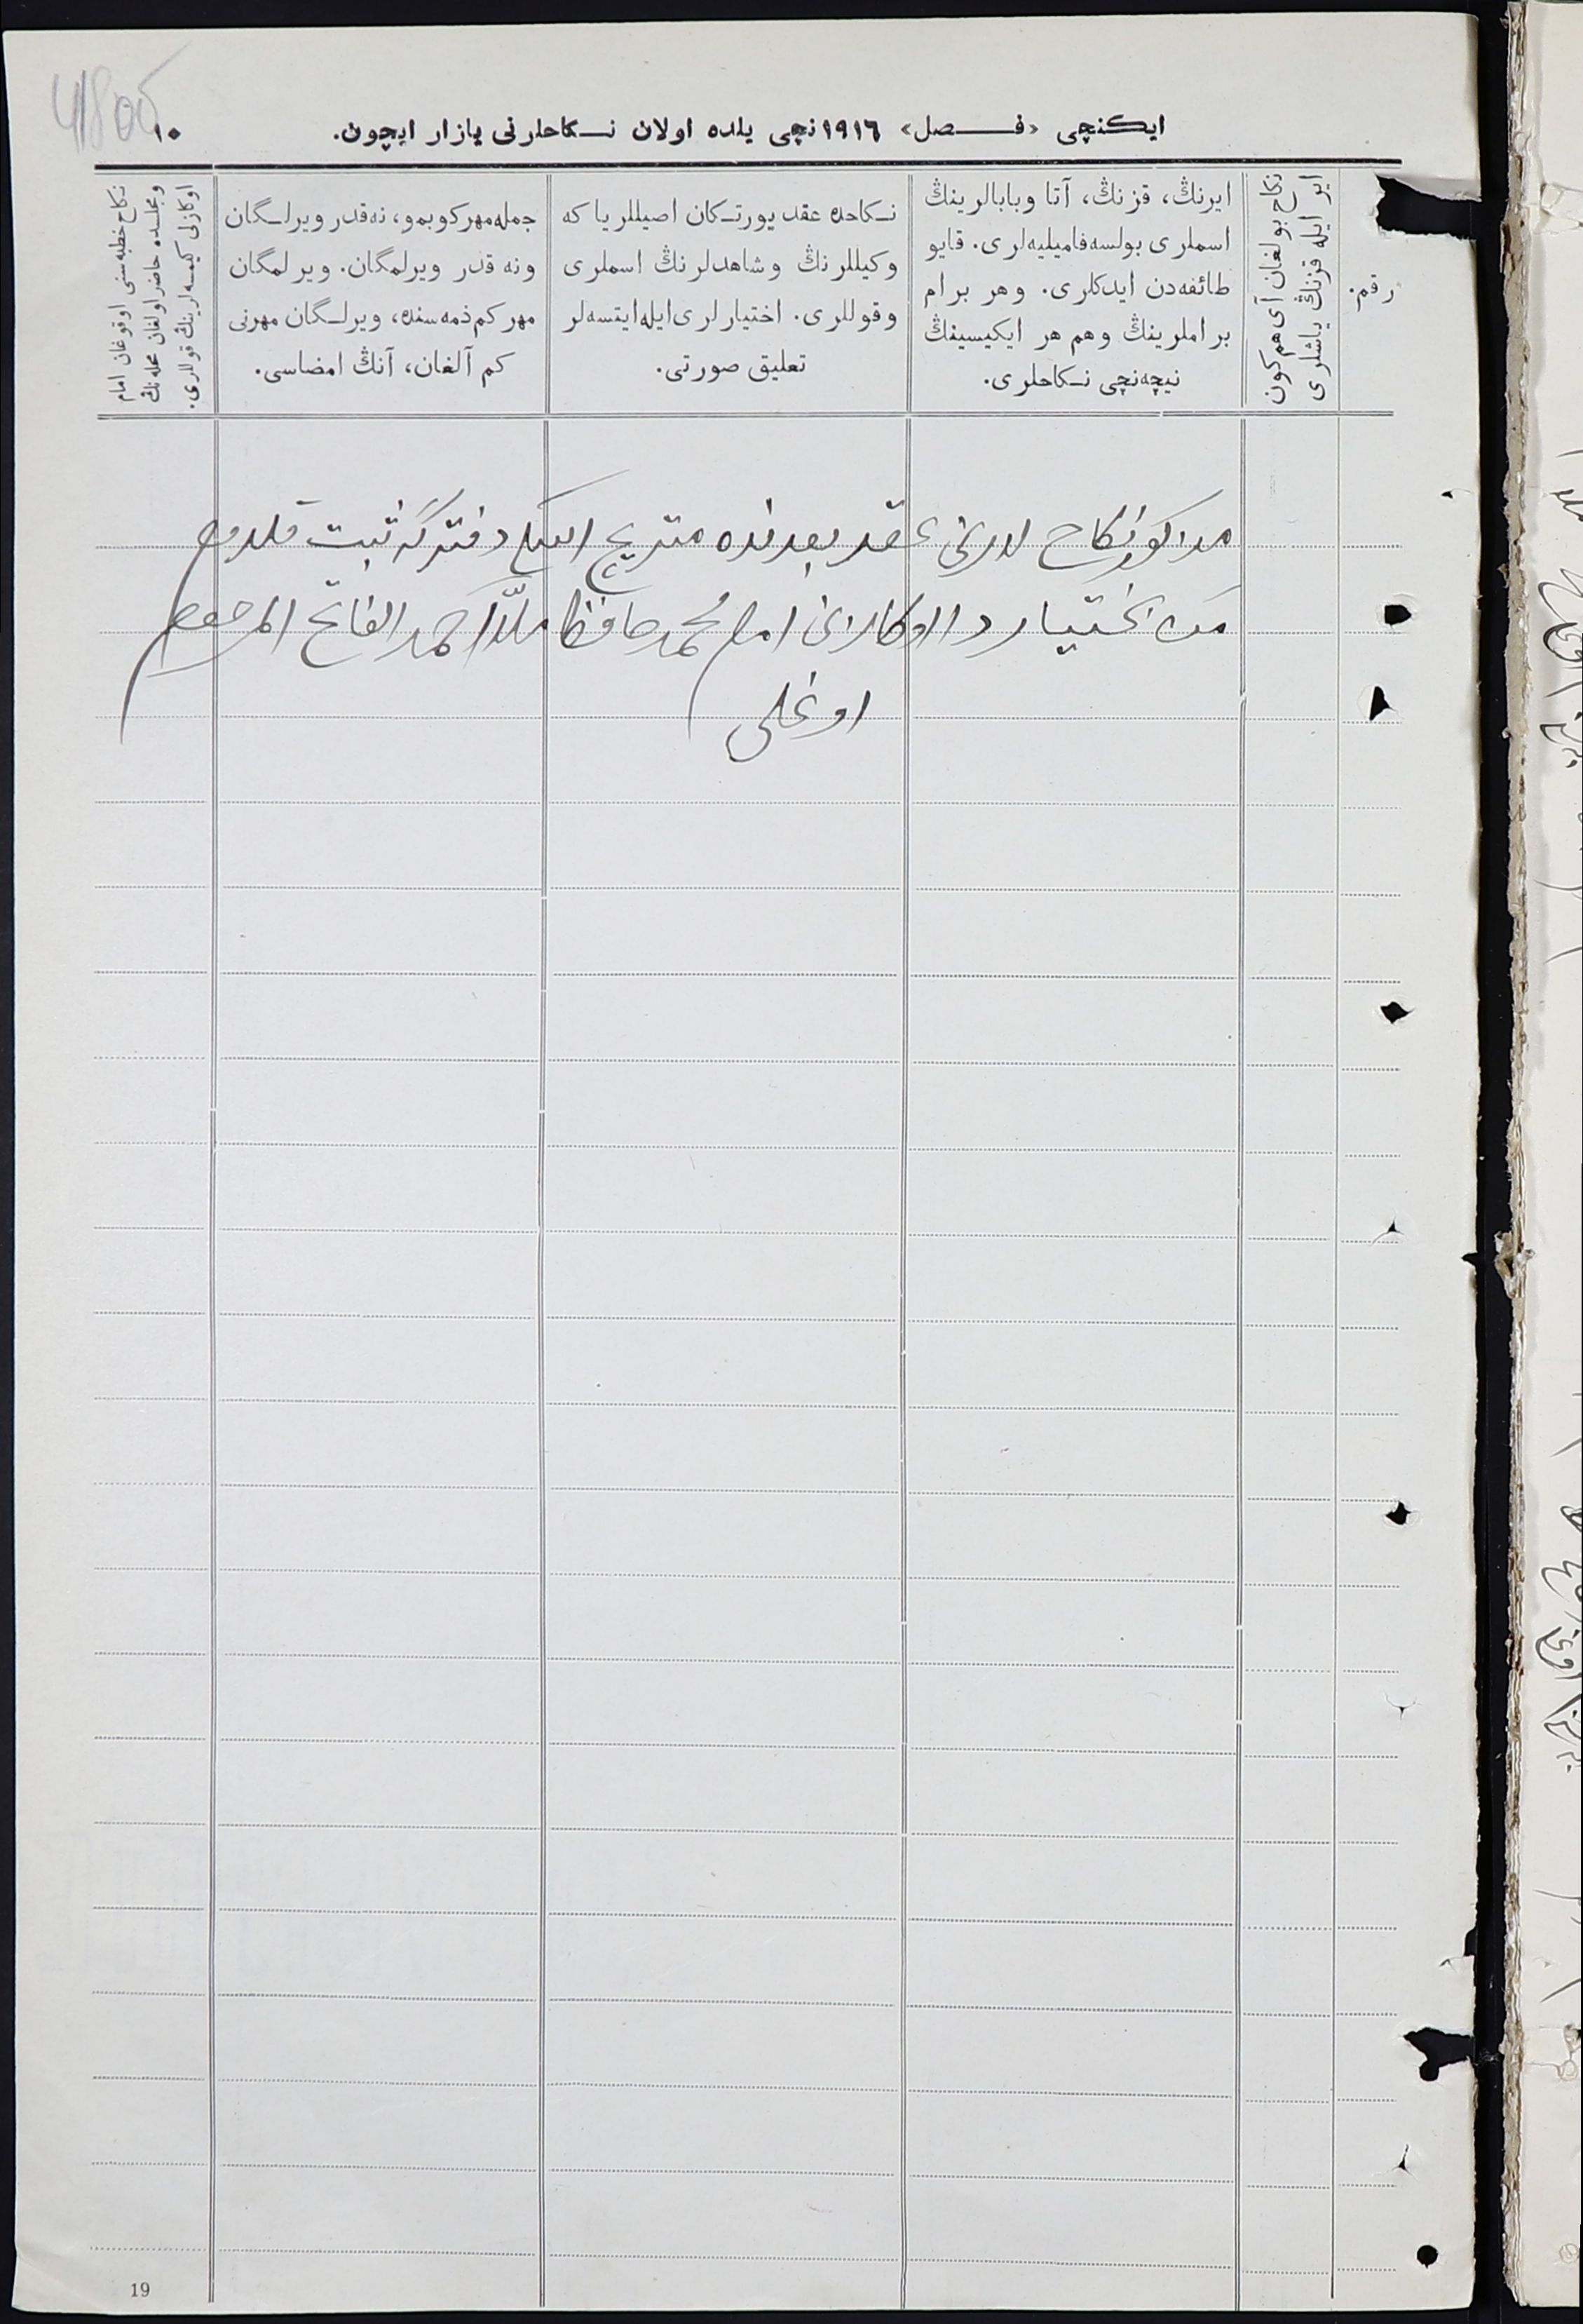 41805
ایكنچی «فـصل» ١٩١٦نچی یلده اولان نـكاحلرنی یازار ایچون.
١٠
رقم.
نكاح بولغان آی هم كون
ایر ایله قزنڭ یاشلری
ایرنڭ، قزنڭ، آتا وبابالرینڭ
اسملری بولسه‌فامیلیه‌لری. قایو
طائفه‌دن ایدكلری. وهر برام
براملرینڭ وهم هر ایكیسینڭ
نیچه‌نچی نـكاحلری.
نـكاحده عقد یورتـكان اصیللر یا كه
وكیللرنڭ وشاهدلرنڭ اسملری
وقوللری. اختیارلری‌ایله‌ایتسه‌لر
تعلیق صورتی.
جمله‌مهر كوبمو، نه‌قدر ویرلـگان
ونه قدر ویرلمگان. ویرلمگان
مهر كم ذمه‌سنده، ویرلـگان مهرنی
كم آلغان، آنڭ امضاسی.
نكاح خطبه‌سنی اوقوغان امام
ومجلسده حاضر اولغان محله‌نڭ
اوكازلی كیمسه‌لرینڭ قوللری.
نكاح لارنی عقد بعدنده متریچ دفترگه ثبت قلدم
بختیارد امام محمد حافظ ملّا احمد الفاتح المرحوم
اوغلی
19